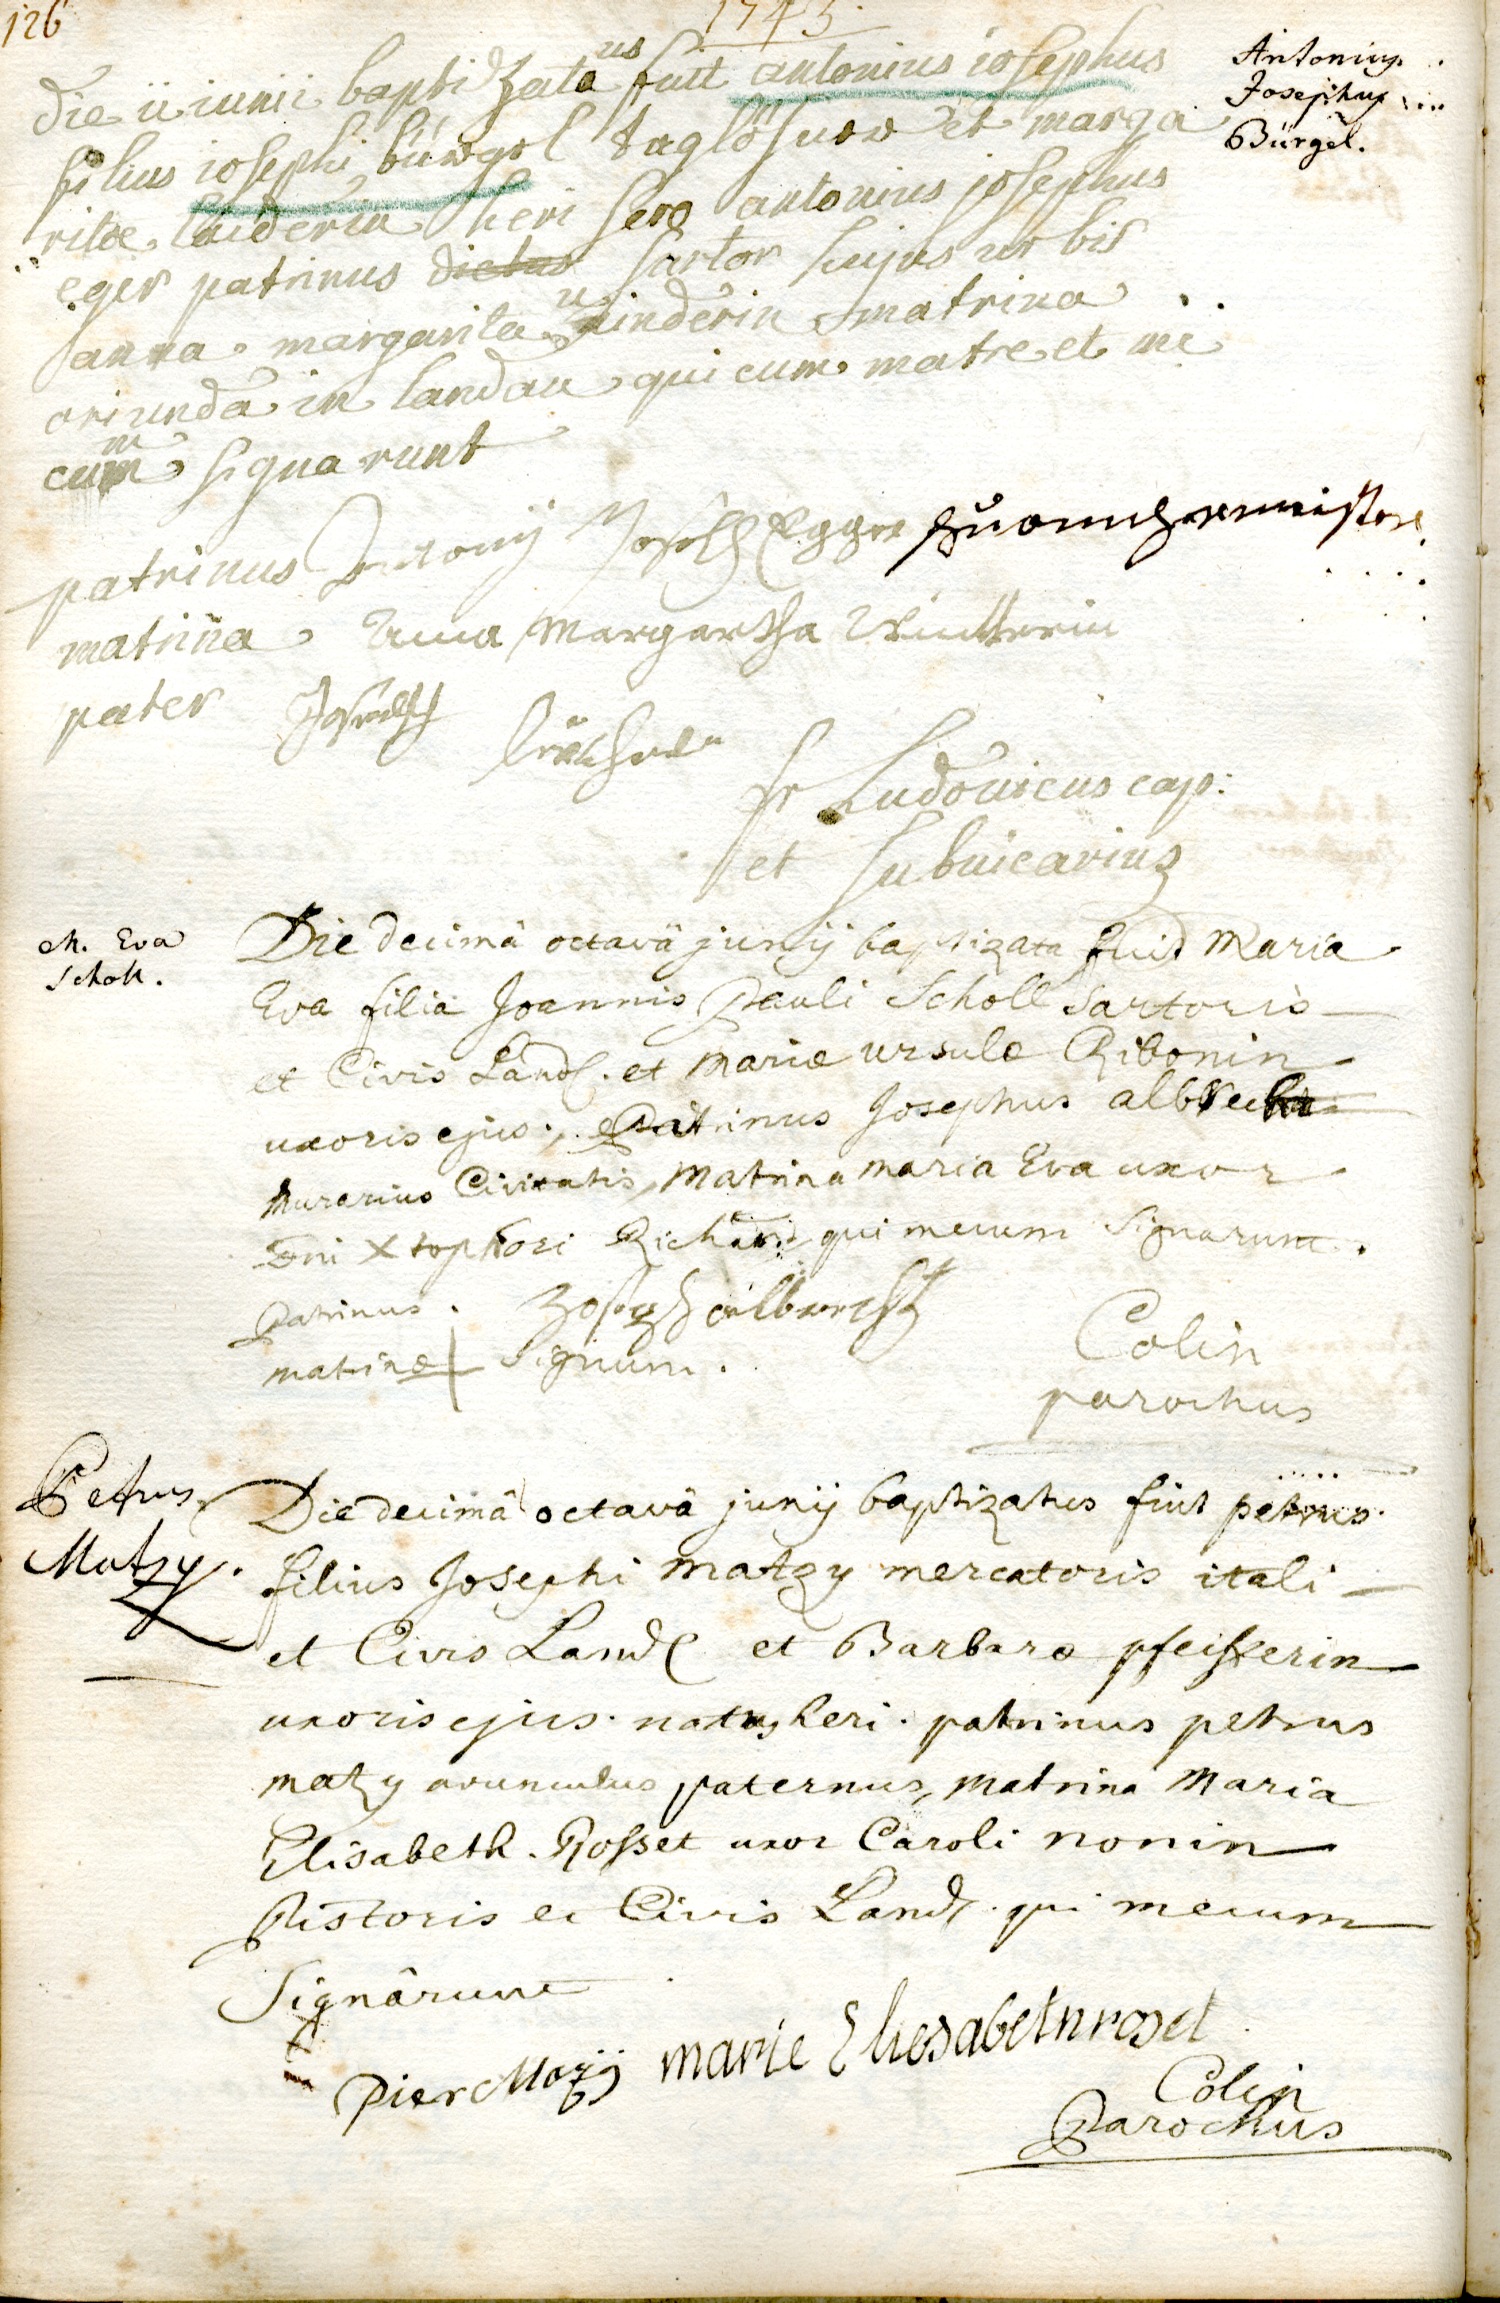 126
1743.
die ii iunii baptidzatus fuit antonius iosephus
Antonius
Josephus
Bürgel.
filius iosephi bürgel taglöhner et marga
ritae heri sero antonius iosephus
eger patrinus dictus sartor hujus urbis
anna margarita winderin matrina
oriunda in landau qui cum matre et me
cum signarunt
patrinus Antonij Joseph Egger
matrina Anna Margartha Wintterin
pater Joseph
fr Ludovicus cap:
et subvicarius
M. Eva
Scholl.
Die decimâ octavâ junij baptizata fuit Maria
Eva filia Joannis Pauli Scholl Sartoris
et Civis Land. et Mariæ ursulæ Ribonin
uxoris ejus, Patrinus Josephus albrecht
Murarius Civitatis, Matrina Maria Eva uxor
Dni Xtophori Richard qui mecum Signarunt.
Patrinus. Joseph albrecht
matrinæ + Signum.
Colin
parochus
Petrus
Matzy.
Die decimâ octavâ junij baptizatus fuit petrus
filius Josephi Matzy mercatoris itali
et Civis Land et Barbaræ pfeifferin
uxoris ejus. natus heri. patrinus petrus
matzy avunculus paternus, Matrina Maria
Elisabeth. Rosset uxor Caroli nonin
Pistoris et Civis Land. qui mecum
Signârunt
Pier Mazij marie Eliesabethroset
Colin
Parochus